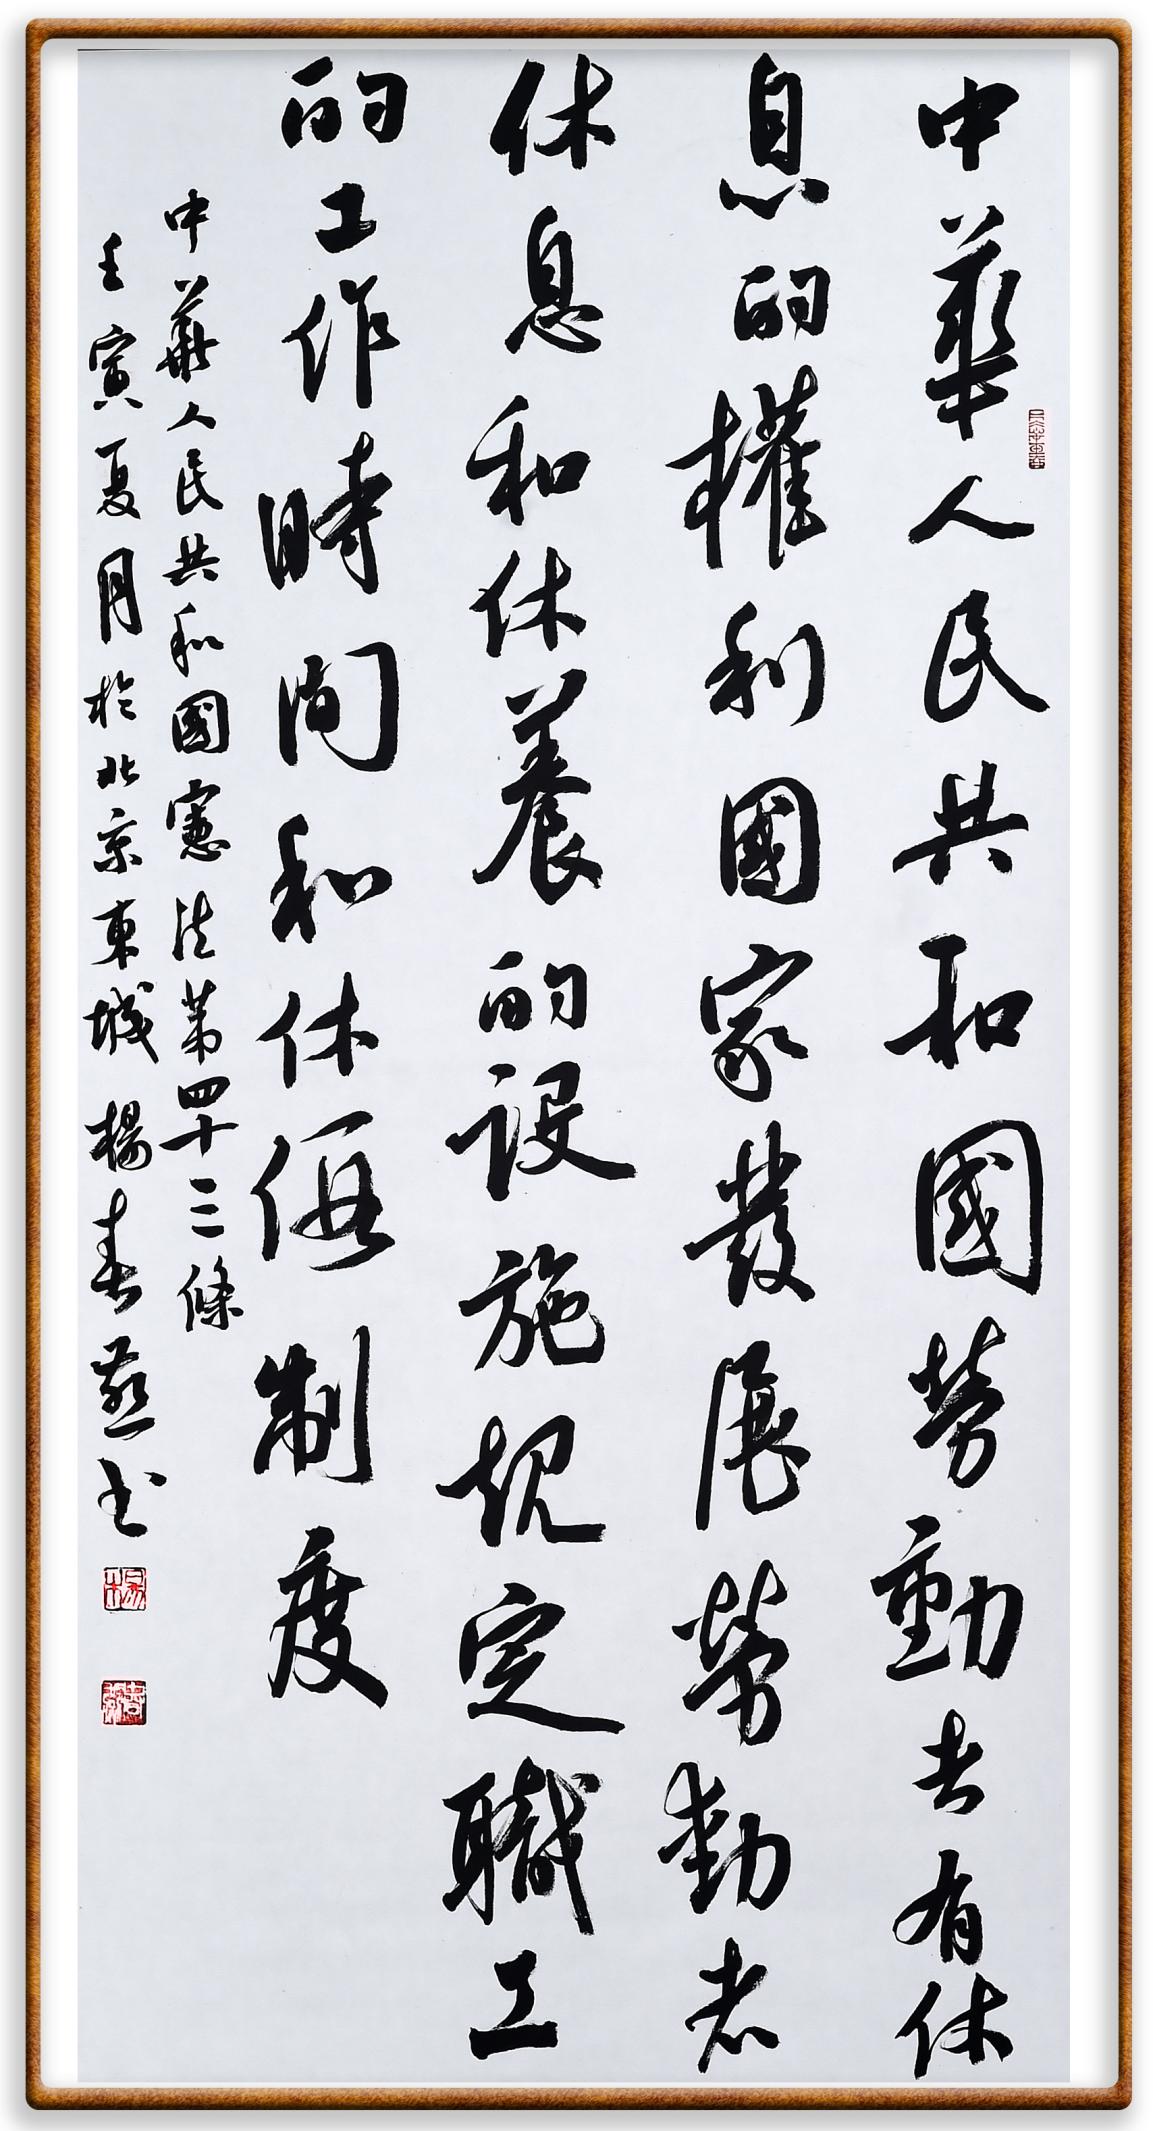 中華人民共和國勞動者有休
息的權利國家發展勞動者
休息和休養的設施規定職工
的工作時間和休假制度
中華人民共和國憲法第四十三條
壬寅夏月於北京東城楊春燕書